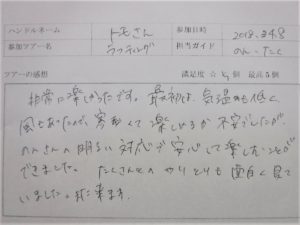 ハンドルネーム トモさん 参加日時 2018.3.4.8
参加ツアー名 ラフティング 担当ガイド のん・たく
ツアーの感想 満足度 ☆ 5個 最高5個
非常に楽しかったです。最初は、気温も低く、
風もあったので、寒くて楽しめるか不安でしたが
のんさんの明るい対応で安心して楽しむことが
できました。たくさんとのやりとりも面白く見て
いました。また来ます。